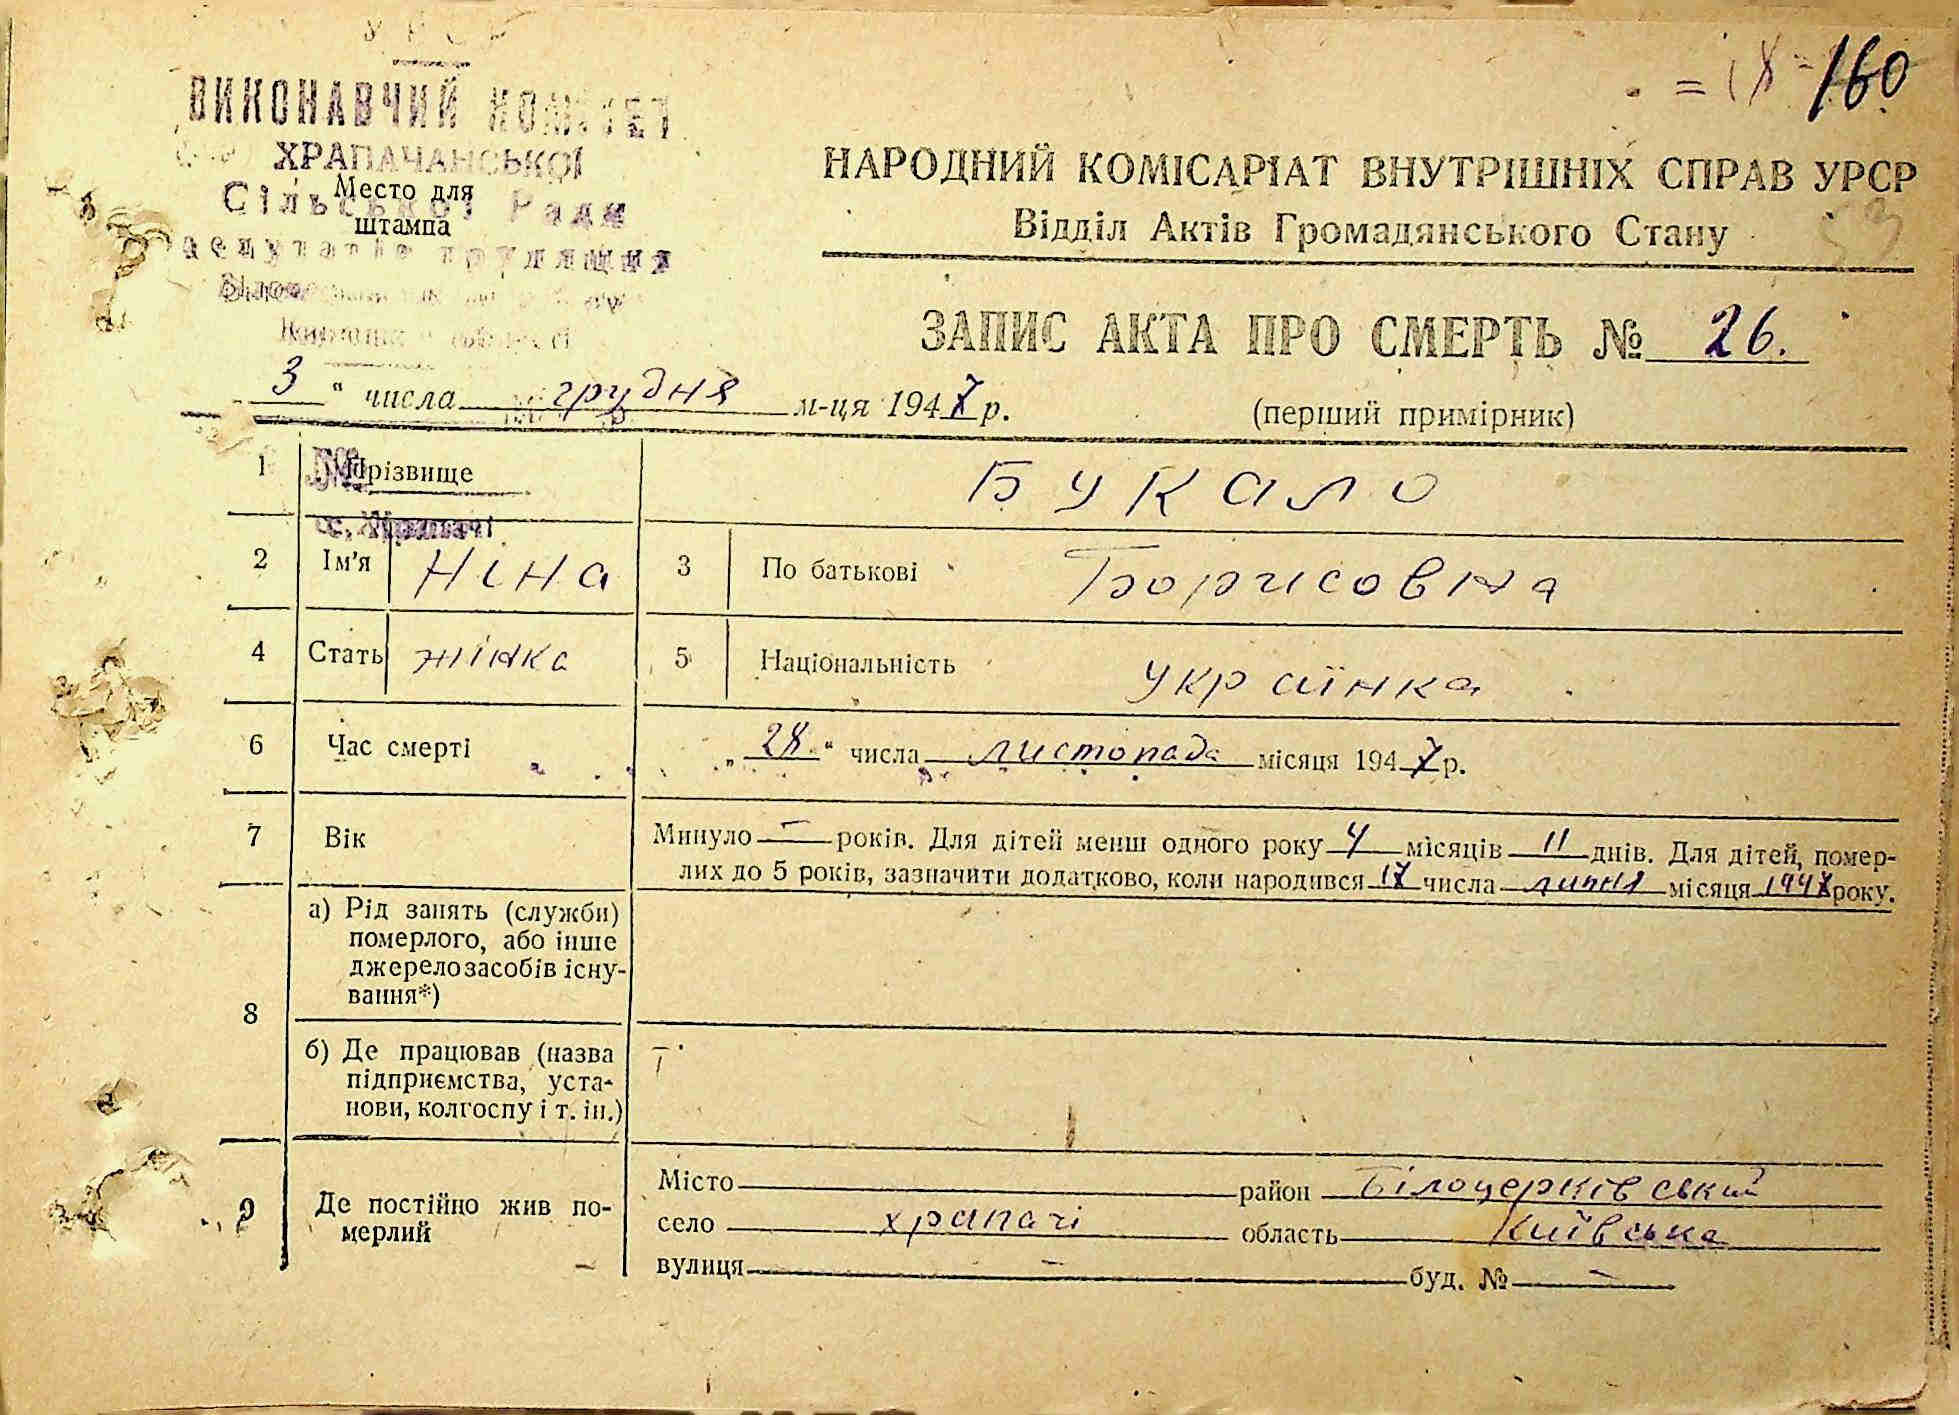 УРСР
ВИКОНАВЧИЙ КОМІТЕТ
ХРАПАЧАНСЬКОЇ
Сільської Ради
депутатів трудящих
Место для
штампа
с. Храпачі
= IX = 160
53
НАРОДНИЙ КОМІСАРІАТ ВНУТРІШНІХ СПРАВ УРСР
Відділ Актів Громадянського Стану
ЗАПИС АКТА ПРО СМЕРТЬ № 26.
3 " числа грудня м-ця 1947 р.
(перший примірник)
1 Прізвище Букало
2 Ім'я Ніна 3 По батькові Борисовна
4 Стать жінка 5 Національність українка
6 Час смерті „ 28 " числа листопада місяця 1947 р.
7 Вік Минуло — років. Для дітей менш одного року 4 місяців 11 днів. Для дітей, помер-
лих до 5 років, зазначити додатково, коли народився 17 числа липня місяця 1947 року.
8 а) Рід занять (служби)
померлого, або інше
джерело засобів існу-
вання*)
б) Де працював (назва
підприємства, уста-
нови, колгоспу і т. ін.)
9 Де постійно жив по-
мерлий
Місто район Білоцерківський
село храпачі область Київська
вулиця — буд. № —